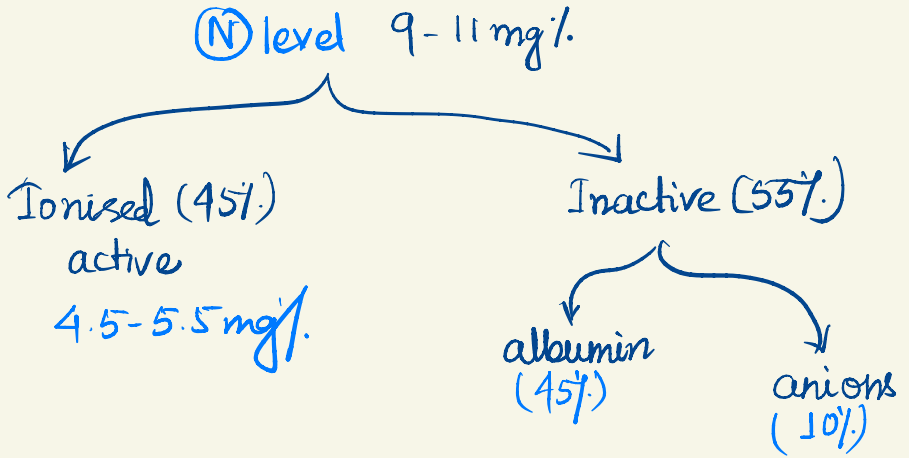 N level 9-11 mg%
Ionised (45%)
active
4.5-5.5 mg%
Inactive (55%)
albumin
(45%)
anions
(10%)